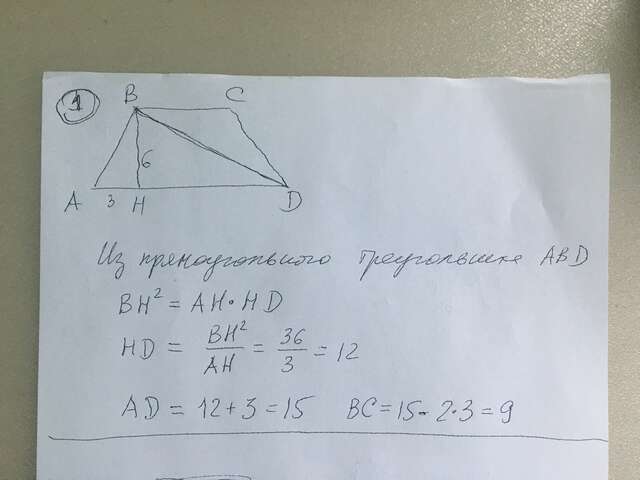 1
B C
6
A 3 H D
Из прямоугольного треугольника ABD
BH² = AH · HD
HD = BH²/AH = 36/3 = 12
AD = 12 + 3 = 15 BC = 15 - 2·3 = 9